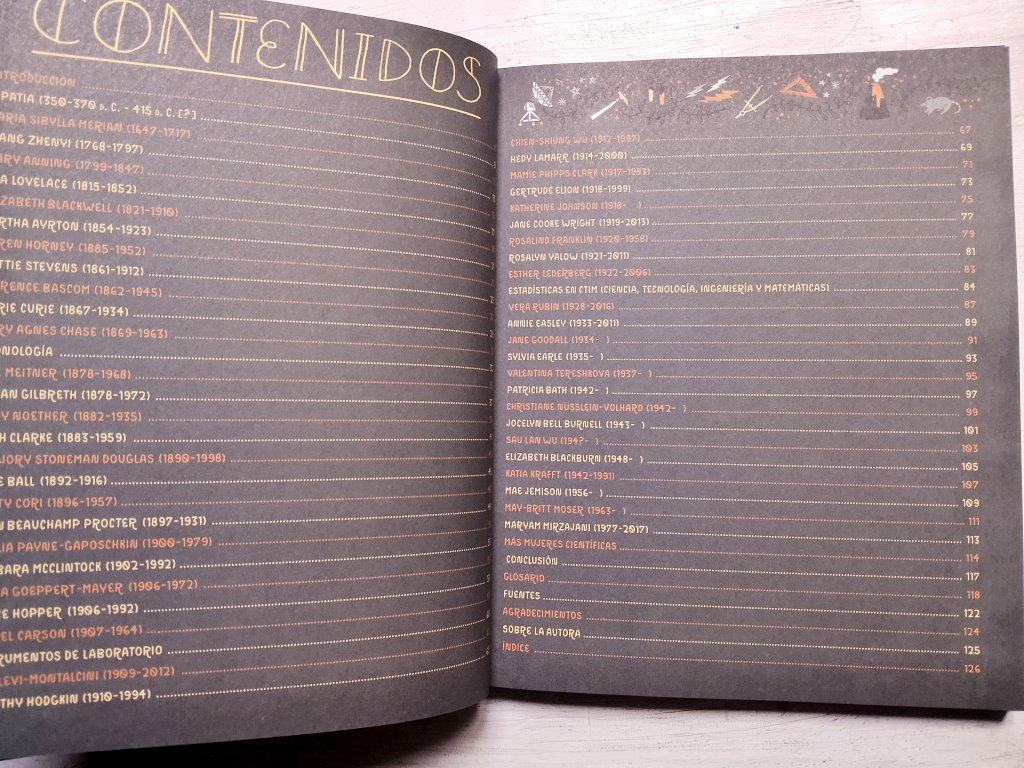 CONTENIDOS
NTRODUCCIÓN
PATIA (350-370 D. C. - 415 D. C. [?]
ARIA SIBYLLA MERIAN (1647-1717)
ANG ZHENYI (1768-1797)
ARY ANNING (1799-1847)
A LOVELACE (1815-1852)
IZABETH BLACKWELL (1821-1910)
RTHA AYRTON (1854-1923)
REN HORNEY (1885-1952)
TTIE STEVENS (1861-1912)
RENCE BASCOM (1862-1945)
RIE CURIE (1867-1934)
RY AGNES CHASE (1869-1963)
ONOLOGÍA
E MEITNER (1878-1968)
IAN GILBRETH (1878-1972)
Y NOETHER (1882-1935)
H CLARKE (1883-1959)
JORY STONEMAN DOUGLAS (1890-1998)
E BALL (1892-1916)
TY CORI (1896-1957)
N BEAUCHAMP PROCTER (1897-1931)
LIA PAYNE-GAPOSCHKIN (1900-1979)
BARA MCCLINTOCK (1902-1992)
A GOEPPERT-MAYER (1906-1972)
CE HOPPER (1906-1992)
EL CARSON (1907-1964)
RUMENTOS DE LABORATORIO
LEVI-MONTALCINI (1909-2012)
THY HODGKIN (1910-1994)
CHIEN-SHIUNG WU (1912-1997) 67
HEDY LAMARR (1914-2000) 69
MAMIE PHIPPS CLARK (1917-1983) 71
GERTRUDE ELION (1918-1999) 73
KATHERINE JOHNSON (1918- ) 75
JANE COOKE WRIGHT (1919-2013) 77
ROSALIND FRANKLIN (1920-1958) 79
ROSALYN YALOW (1921-2011) 81
ESTHER LEDERBERG (1922-2006) 83
ESTADÍSTICAS EN CTIM (CIENCIA, TECNOLOGÍA, INGENIERÍA Y MATEMÁTICAS) 84
VERA RUBIN (1928-2016) 87
ANNIE EASLEY (1933-2011) 89
JANE GOODALL (1934- ) 91
SYLVIA EARLE (1935- ) 93
VALENTINA TERESHKOVA (1937- ) 95
PATRICIA BATH (1942- ) 97
CHRISTIANE NÜSSLEIN-VOLHARD (1942- ) 99
JOCELYN BELL BURNELL (1943- ) 101
SAU LAN WU (194?- ) 103
ELIZABETH BLACKBURN (1948- ) 105
KATIA KRAFFT (1942-1991) 107
MAE JEMISON (1956- ) 109
MAY-BRITT MOSER (1963- ) 111
MARYAM MIRZAJANI (1977-2017) 113
MÁS MUJERES CIENTÍFICAS 114
CONCLUSIÓN 117
GLOSARIO 118
FUENTES 122
AGRADECIMIENTOS 124
SOBRE LA AUTORA 125
ÍNDICE 126